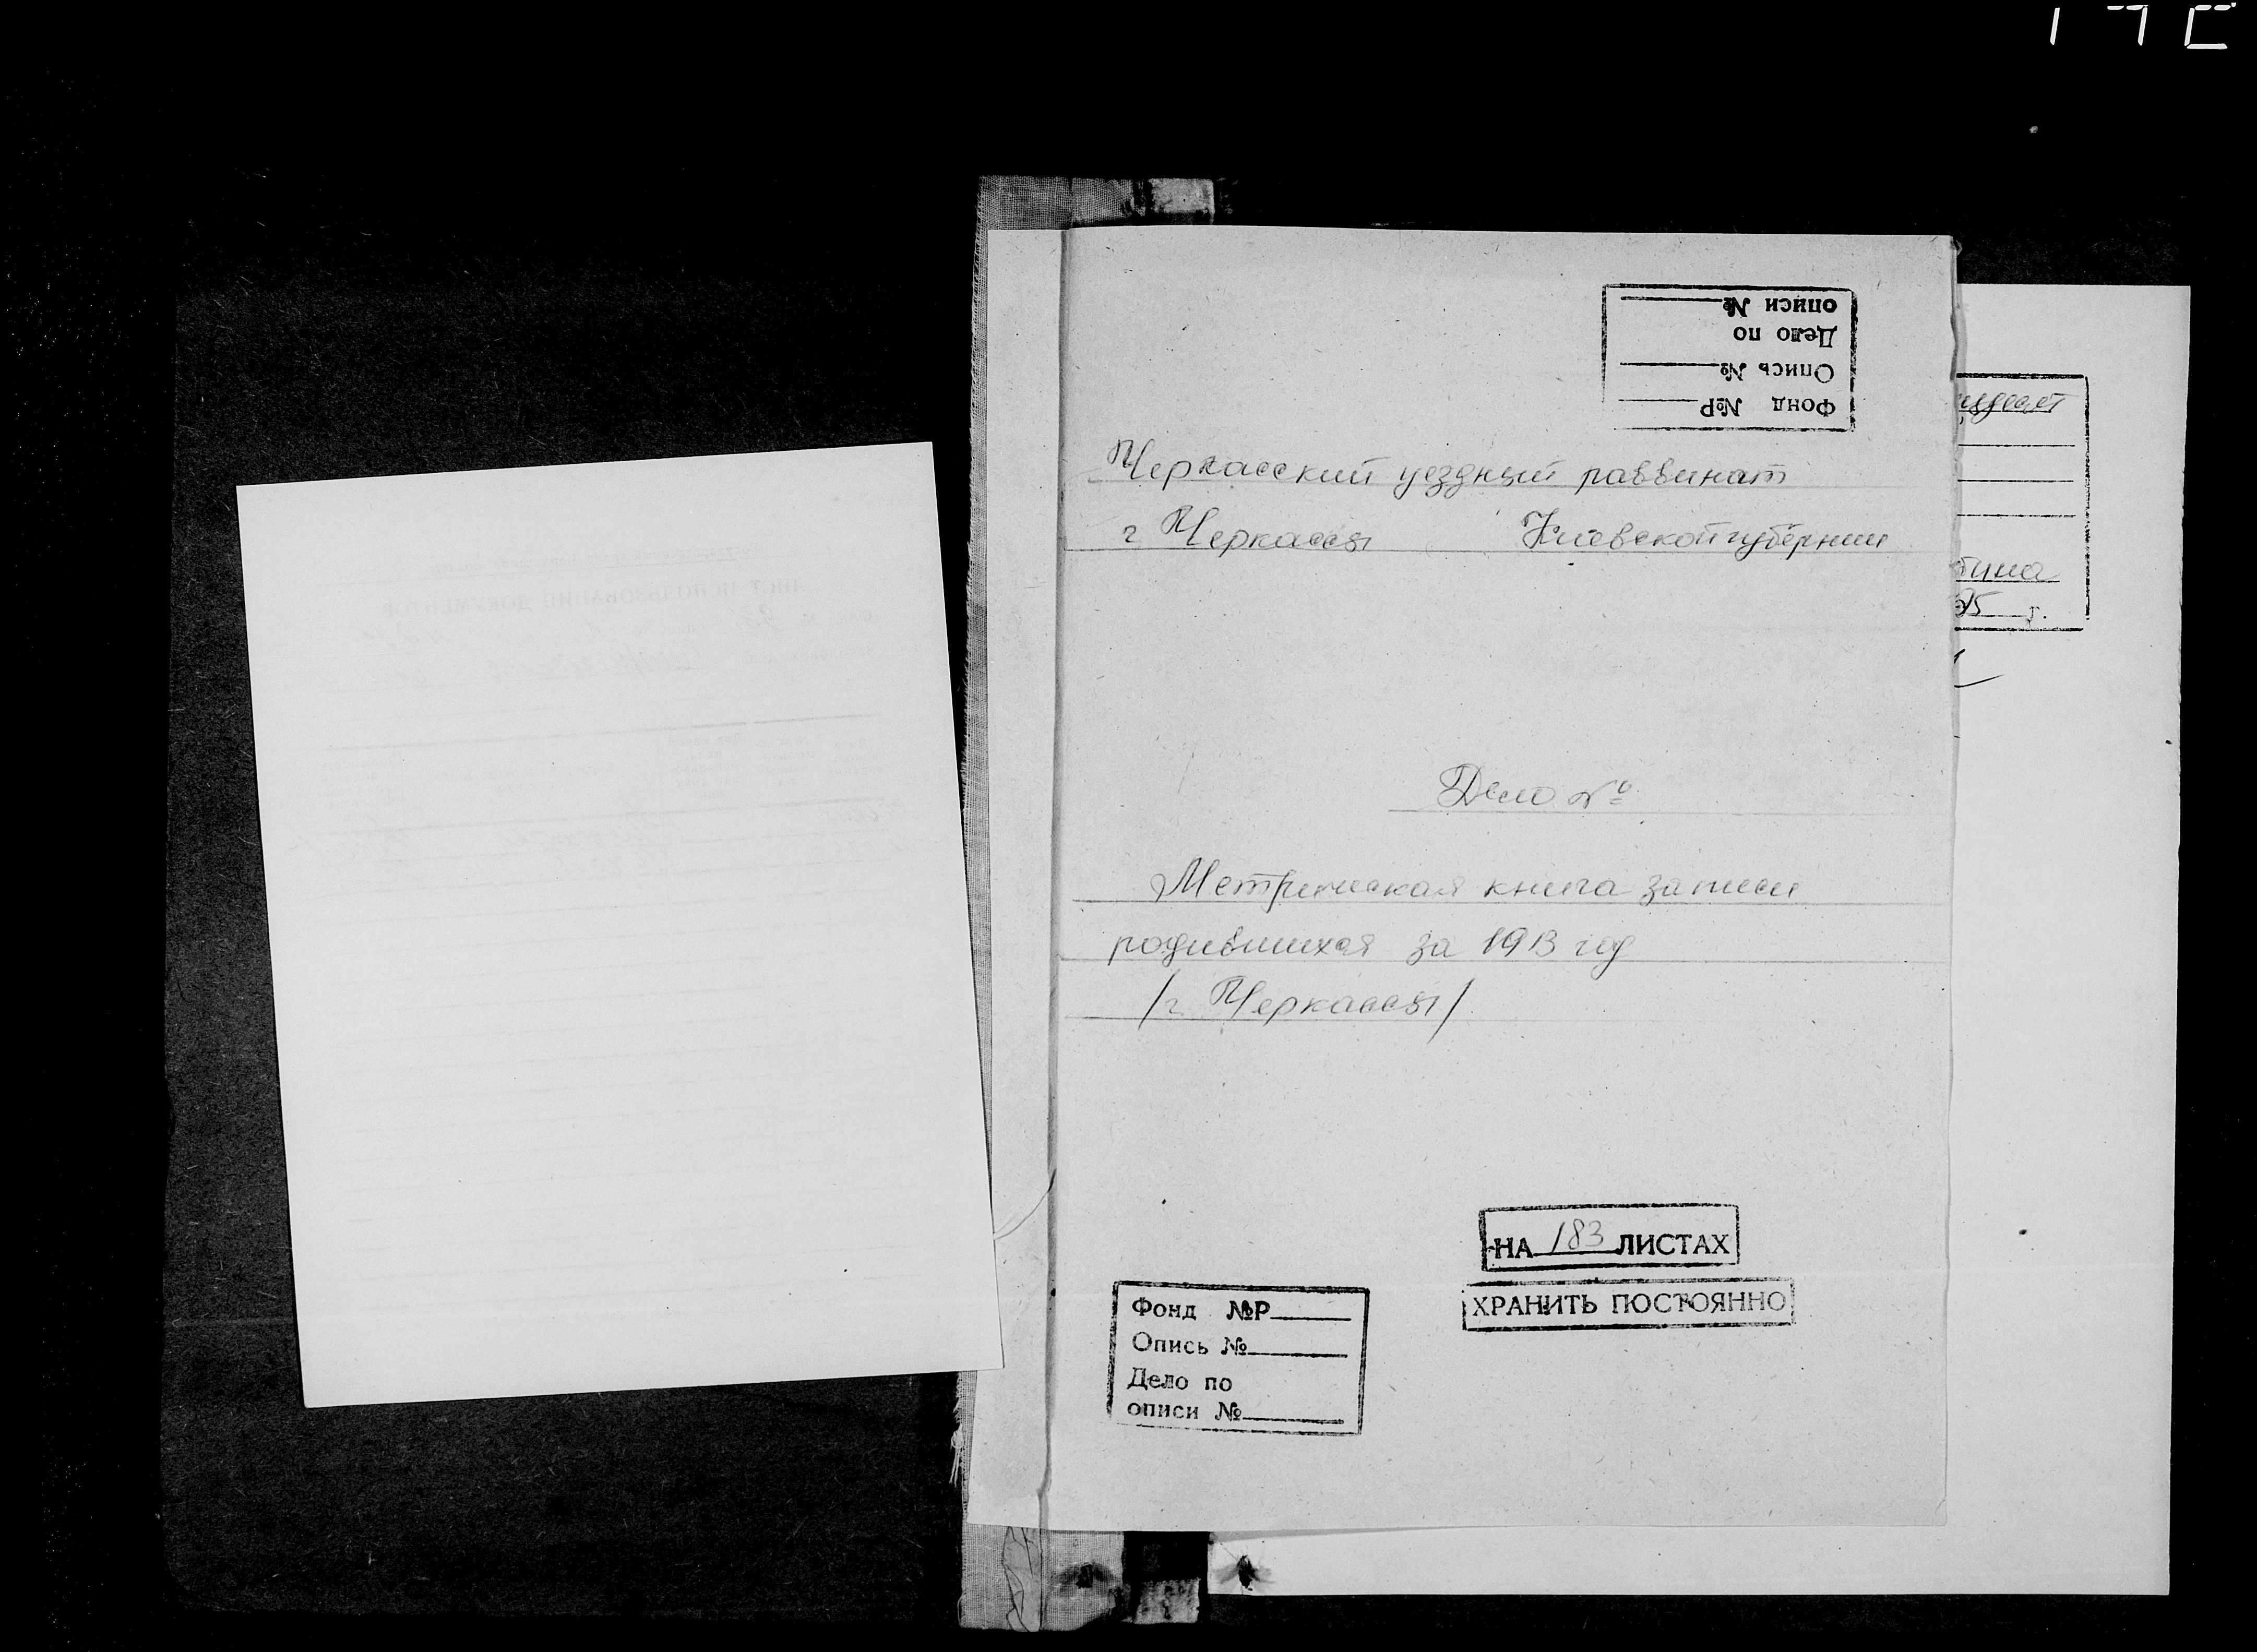 описи №
Дело по
Опись №
Фонд №Р
Черкасский уездный раввинат
г Черкассы Киевской губернии
тина
г.
Дело №
Метрическая книга записи
родившихся за 1913 год
/г. Черкассы/
НА 183 ЛИСТАХ
ХРАНИТЬ ПОСТОЯННО
Фонд №Р
Опись №
Дело по
описи №